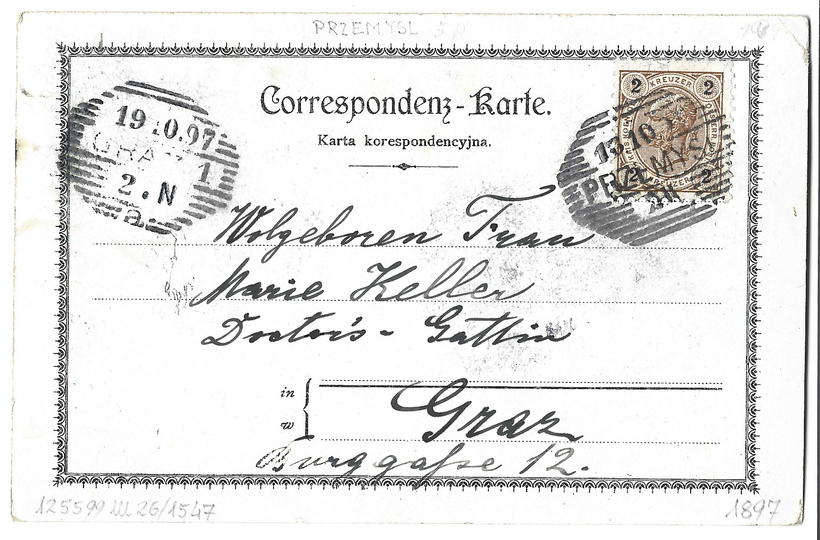 PRZEMYSL
Correspondenz-Karte.
Karta korespondencyjna.
2 KREUZER 2
2 KREUZER 2
13.10
PRZEMYŚL
19 10.97
GRAZ 1
2.N
a
Wolgeboren Frau
Marie Keller
Doctor's-Gattin
in
w
Graz
Burggasse 12.
125599 III 26/1547
1897